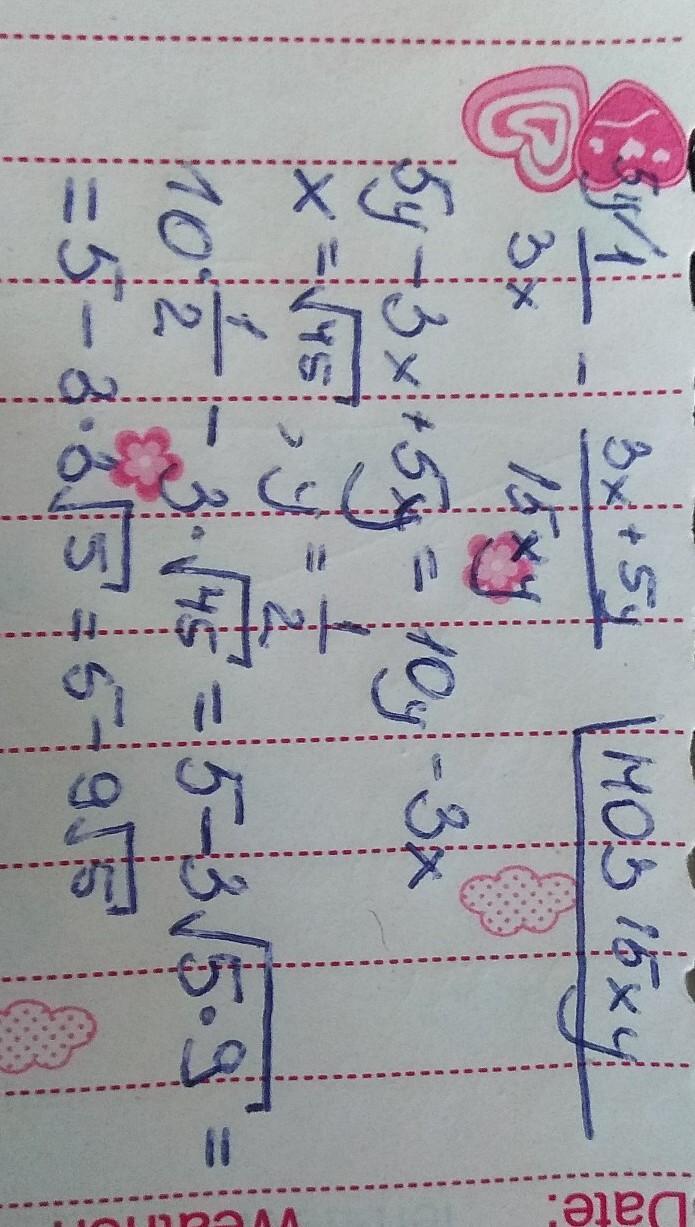 5y/ 1/3x - (3x + 5y)/15xy √НОЗ 15xy
5y - 3x + 5y = 10y - 3x
x = √45 , y = 1/2
10 · 1/2 - 3 · √45 = 5 - 3√5 · 9 =
= 5 - 3 · 3√5 = 5 - 9√5
Date: